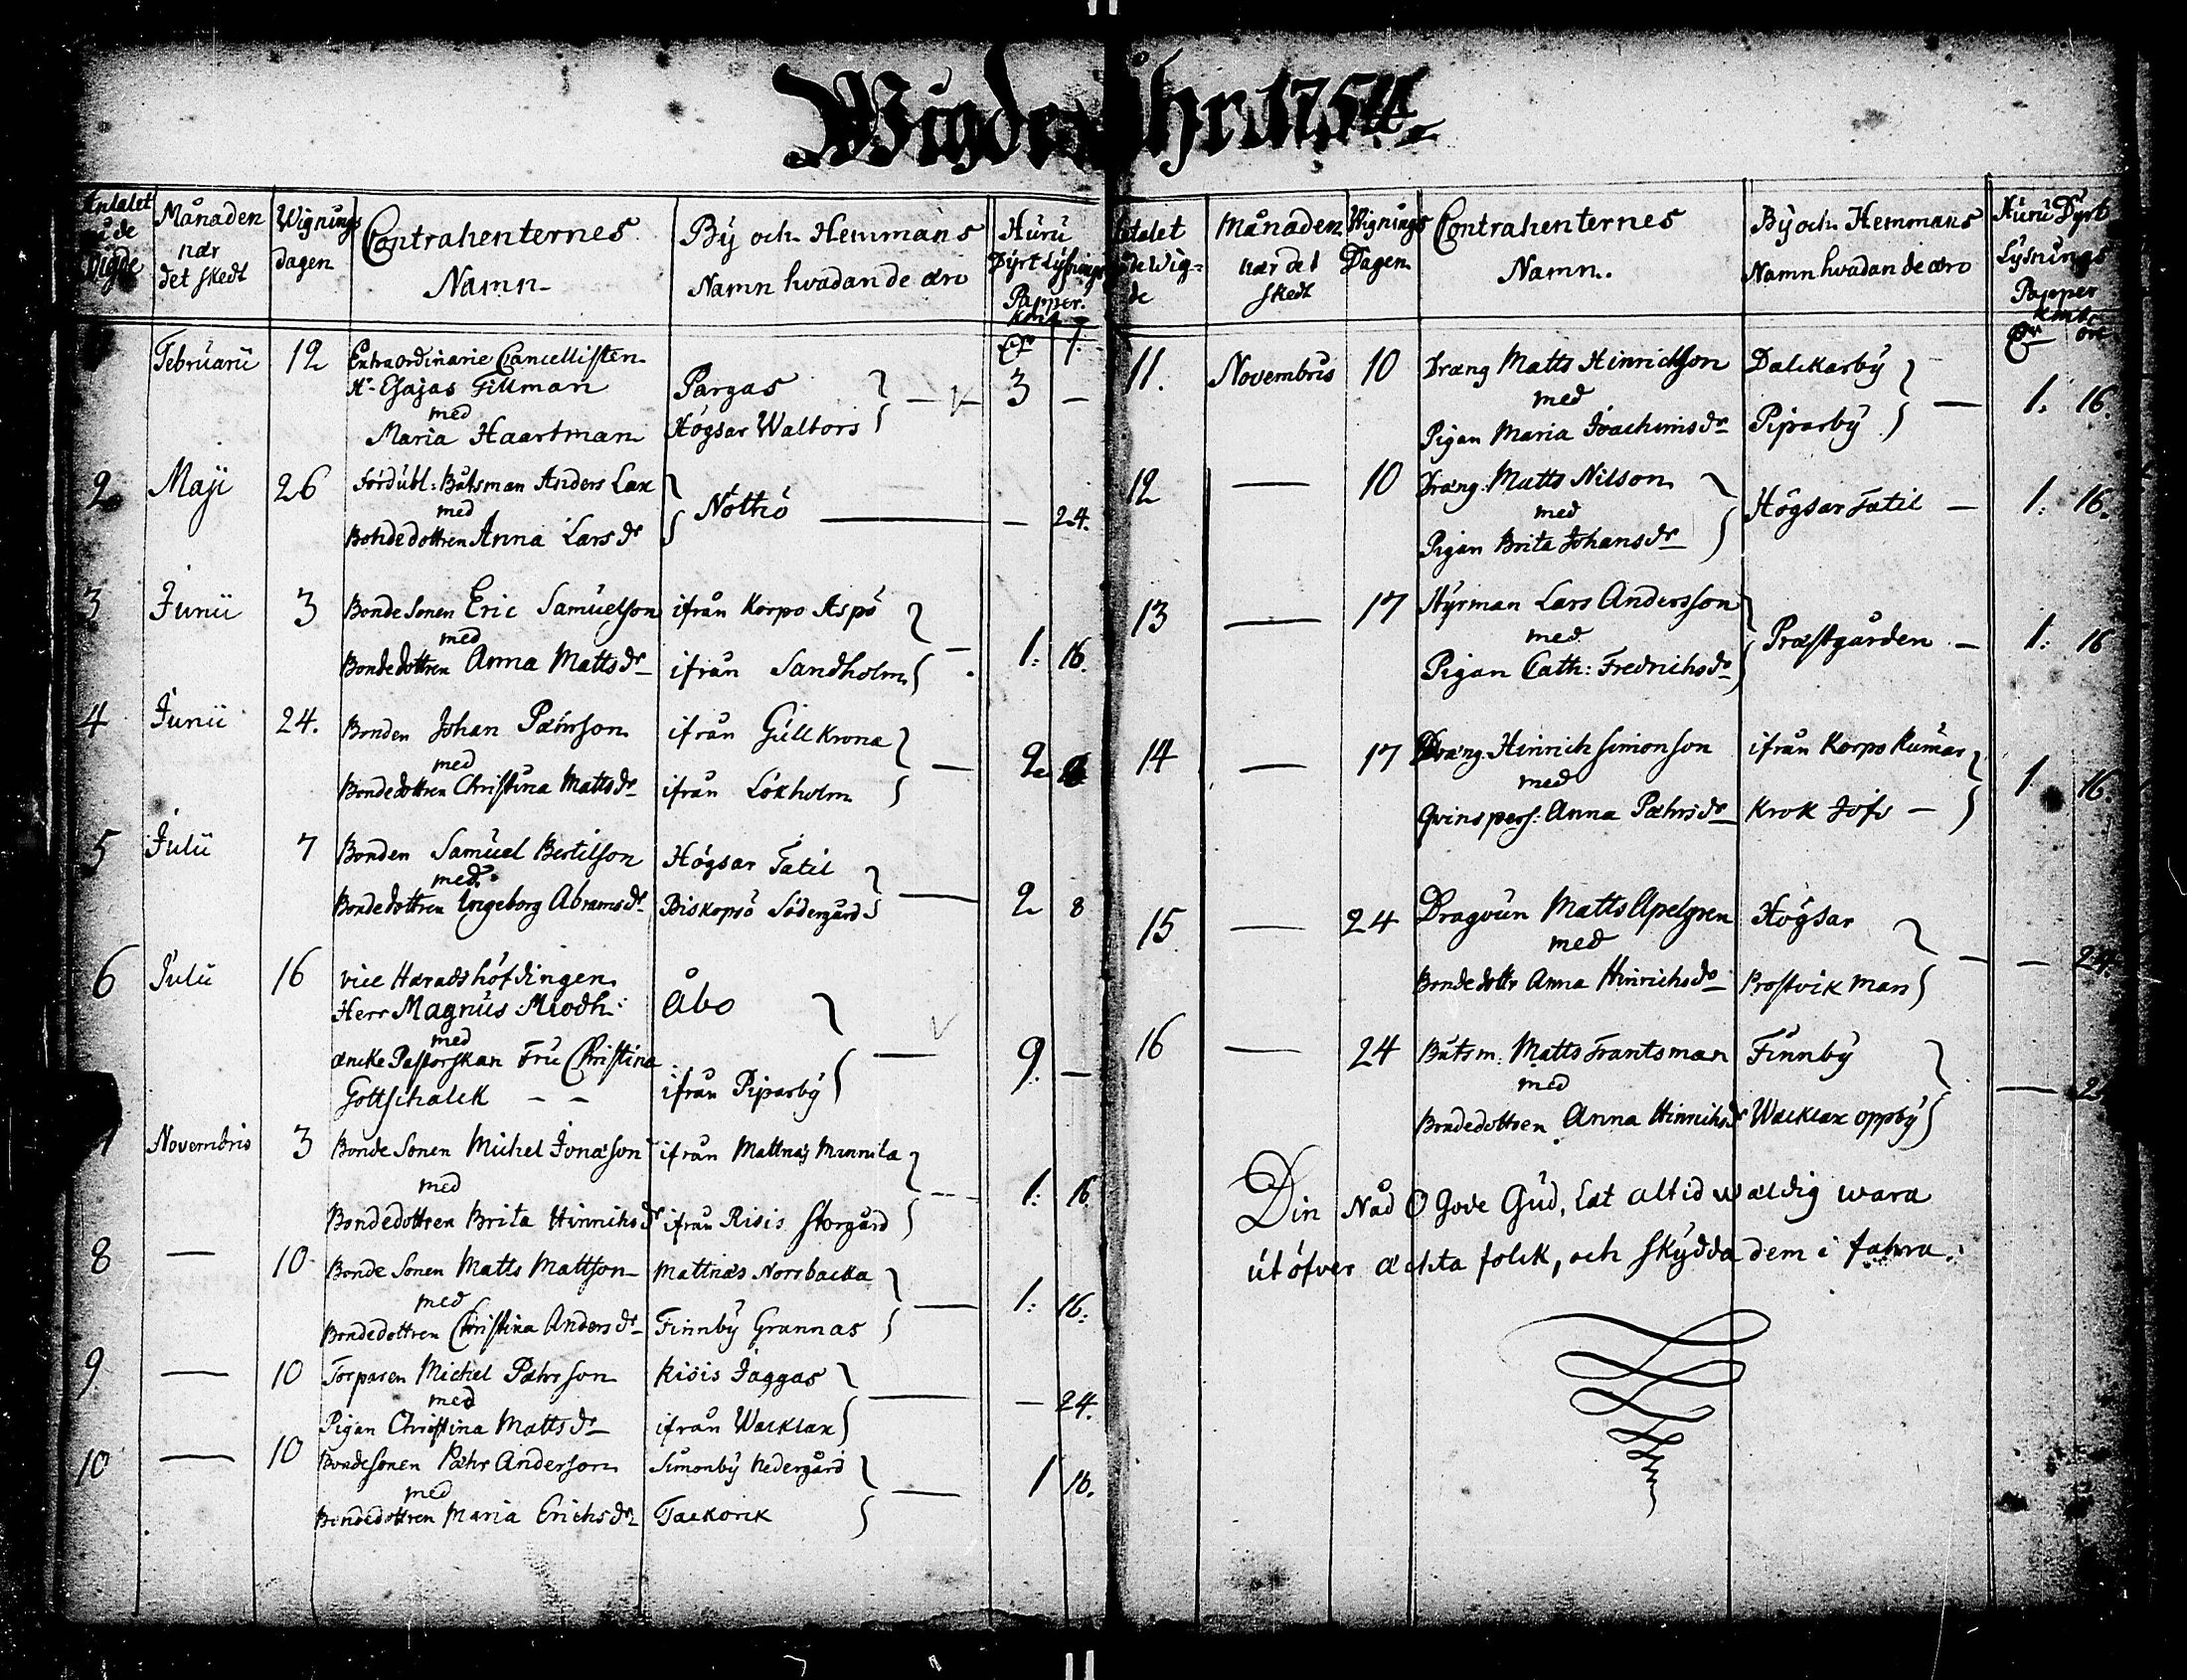 Wigde Åhr 1754.
Antalet på de Wigde
Månaden nær det skedt
Wignings dagen
Contrahenternes Namn
By och Hemmans Namn hvadan de æro
Huru Dyrt Lysnings Papper kost
Februarii 12 Extraordinarie Cancellisten
Hr. Esajas Gillman Pargas 3 —
med
Maria Haartman Högsar Waltors
2 Maji 26 Fördubl: Båtsman Anders Lax
med Nöthö — 24.
Bondedottren Anna Larsdr
3 Junii 3 Bonde Sonen Eric Samuelson ifrån Korpo Aspö
med 1: 16.
Bondedottren Anna Mattsdr ifrån Sandholm
4 Junii 24. Bonden Johan Pæhrson ifrån Gullkrona
med 2
Bondedottren Christina Mattsdr ifrån Lökholm
5 Julii 7 Bonden Samuel Bertilson Högsar Tatil
med 2 8
Bondedottren Ingeborg Abramsdr Biskopsö Södergård
6 Julii 16 vice Hæradshöfdingen
Herr Magnus Miödh: Åbo
med 9. —
æncke Pastorskan Fru Christina
Gottschalck — — ifrån Piparby
7 Novembris 3 Bonde Sonen Michel Jonæson ifrån Mattnæs Mannila
med 1: 16
Bondedottren Brita Hinrichsdr ifrån Risis Storgård
8 — 10 Bonde Sonen Matts Mattson Mattnæs Norrbacka
med 1: 16:
Bondedottren Christina Andersdr Finnby Grannas
9 — 10 Torparen Michel Pæhrson Risis Jaggas
med — 24.
Pigan Christina Mattsdr ifrån Wacklax
10 — 10 Bondesonen Pæhr Anderson Simonby Nedergård
med 1 16.
Bondedottren Maria Erichsdr Tackork
Antalet på de Wigde
Månaden nær det skedt
Wignings Dagen
Contrahenternes Namn.
By och Hemmans Namn hvadan de æro
Huru Dyrt Lysnings Papper kost öre
11. Novembris 10 Dræng Matts Hinrichson Dalckarby
med 1. 16.
Pigan Maria Joachimsdr Piparby
12 — 10 Dræng: Matts Nilson
med Högsar Tatil — 1: 16.
Pigan Brita Johansdr
13 — 17 Styrman Lars Andersson
med Præstgården — 1: 16
Pigan Cath: Fredrichsdr
14 — 17 Dræng: Hinrich Simonson ifrån Korpo Rumar
med 1 16.
Qvinspers: Anna Pæhrsdr Krok Jofs —
15 — 24 Dragoun Matts Apelgren Högsar
med — 24.
Bondedottr Anna Hinrichsdr Prostvik Mass
16 — 24 Båtsm: Matts Frantsman Finnby
med — 2
Bondedottren Anna Hinrichsdr Wacklax oppby
Din Nåd O Gode Gud, lat altid wældig wara
utöfver æchta folck, och skydda dem i fahra: